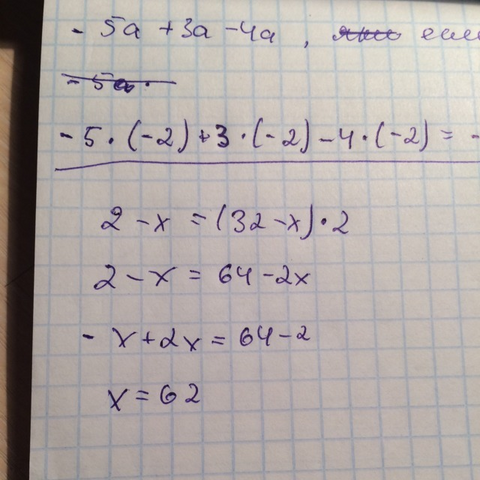 - 5a + 3a - 4a , если
- 5a ·
- 5 · (-2) + 3 · (-2) - 4 · (-2) = -
2 - x = (32 - x) · 2
2 - x = 64 - 2x
- x + 2x = 64 - 2
x = 62